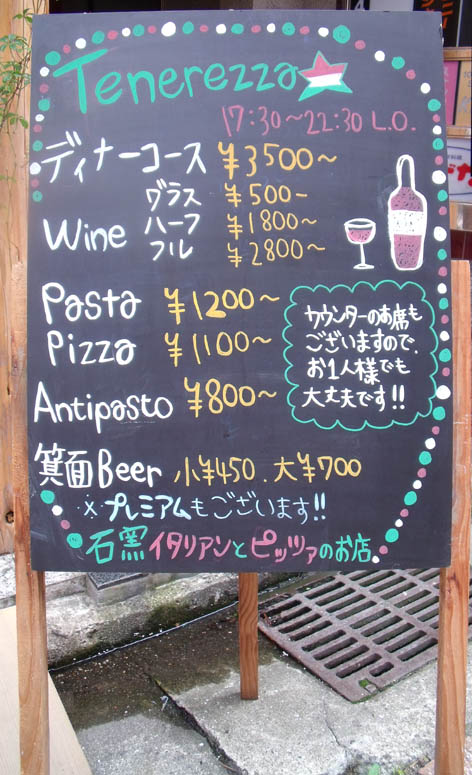 Tenerezza
17:30~22:30 L.O.
ディナーコース ¥3500~
Wine
グラス ¥500-
ハーフ ¥1800~
フル ¥2800~
Pasta ¥1200~
Pizza ¥1100~
Antipasto ¥800~
カウンターのお席も
ございますので、
お1人様でも
大丈夫です!!
箕面Beer 小¥450. 大¥700
※プレミアムもございます!!
石窯イタリアンとピッツァのお店